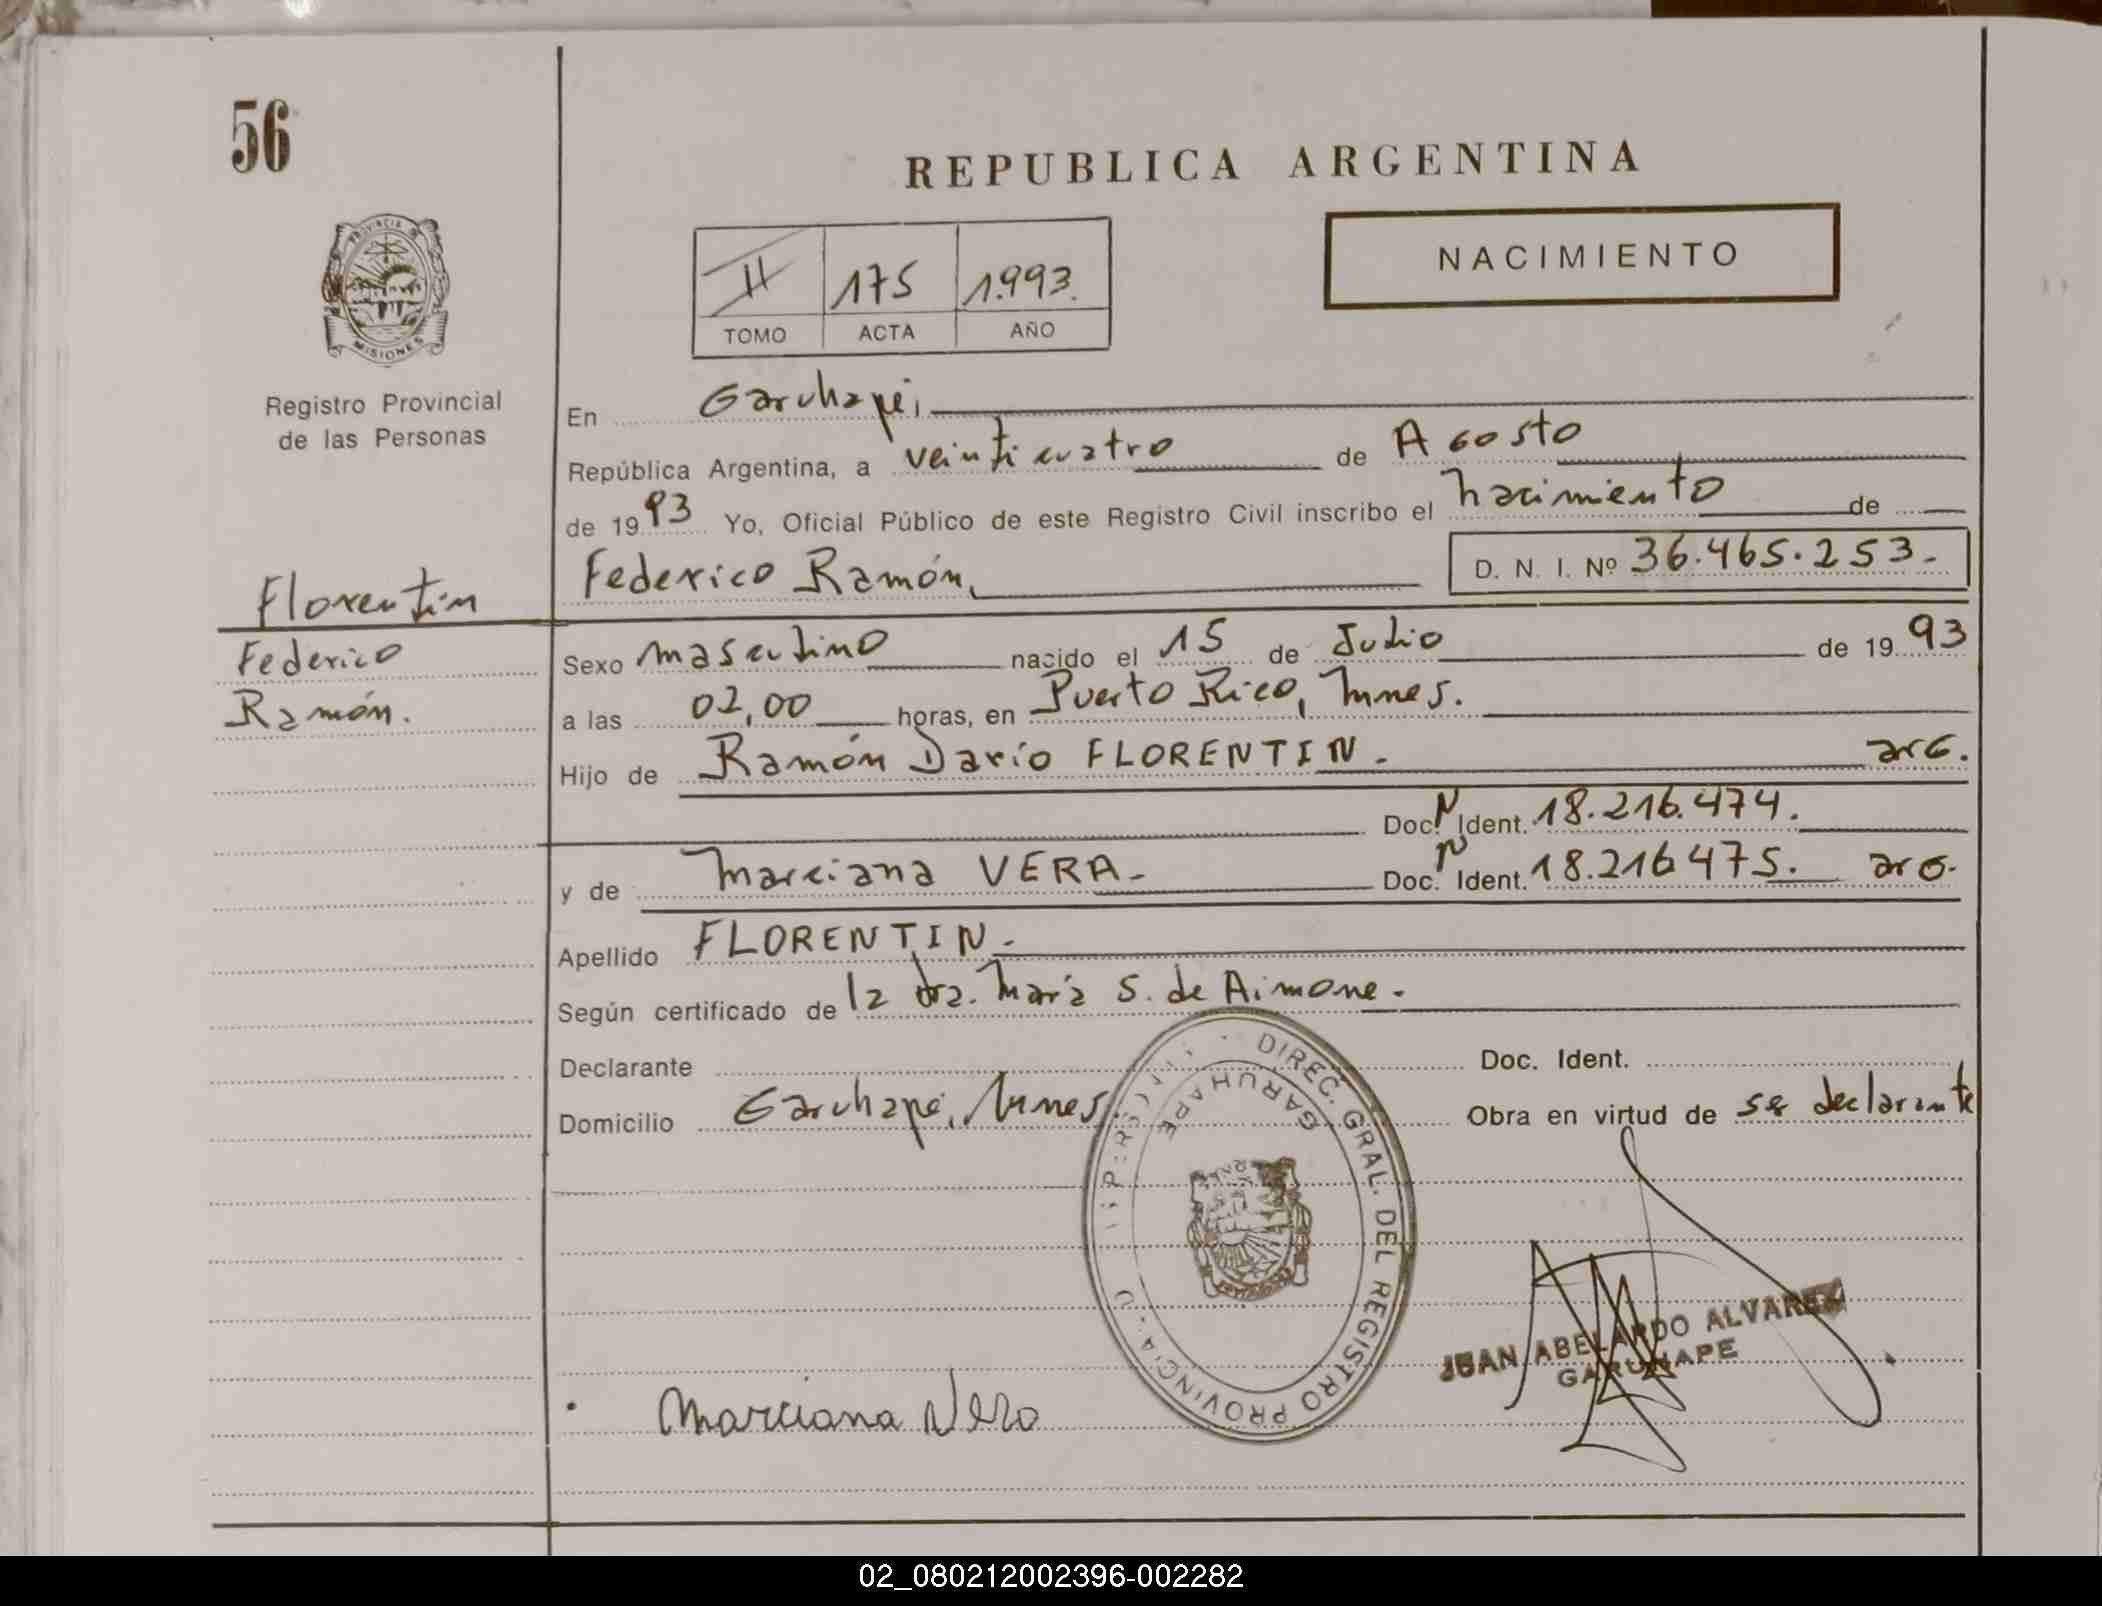 56
REPUBLICA ARGENTINA
NACIMIENTO
II 175 1.993.
TOMO ACTA AÑO
PROVINCIA DE
MISIONES
Registro Provincial
de las Personas
En Garuhapé,
República Argentina, a veinticuatro de Agosto
de 1993 Yo, Oficial Público de este Registro Civil inscribo el nacimiento de
Federico Ramón, D. N. I. Nº 36.465.253.-
Florentin
Federico
Ramón.
Sexo masculino nacido el 15 de Julio de 1993
a las 02,00 horas, en Puerto Rico, Mnes.
Hijo de Ramón Darío FLORENTIN. arg.
Doc. N Ident. 18.216.474.
y de Marciana VERA- Doc. N Ident. 18.216475. arg.
Apellido FLORENTIN.-
Según certificado de la dra. María S. de Aimone.
Declarante Doc. Ident.
Domicilio Garuhapé, Mnes Obra en virtud de ser declarante
DIREC. GRAL. DEL REGISTRO PROVINCIAL
GARUHAPE
JUAN ABELARDO ALVAREZ
GARUHAPE
Marciana Vera
02_080212002396-002282